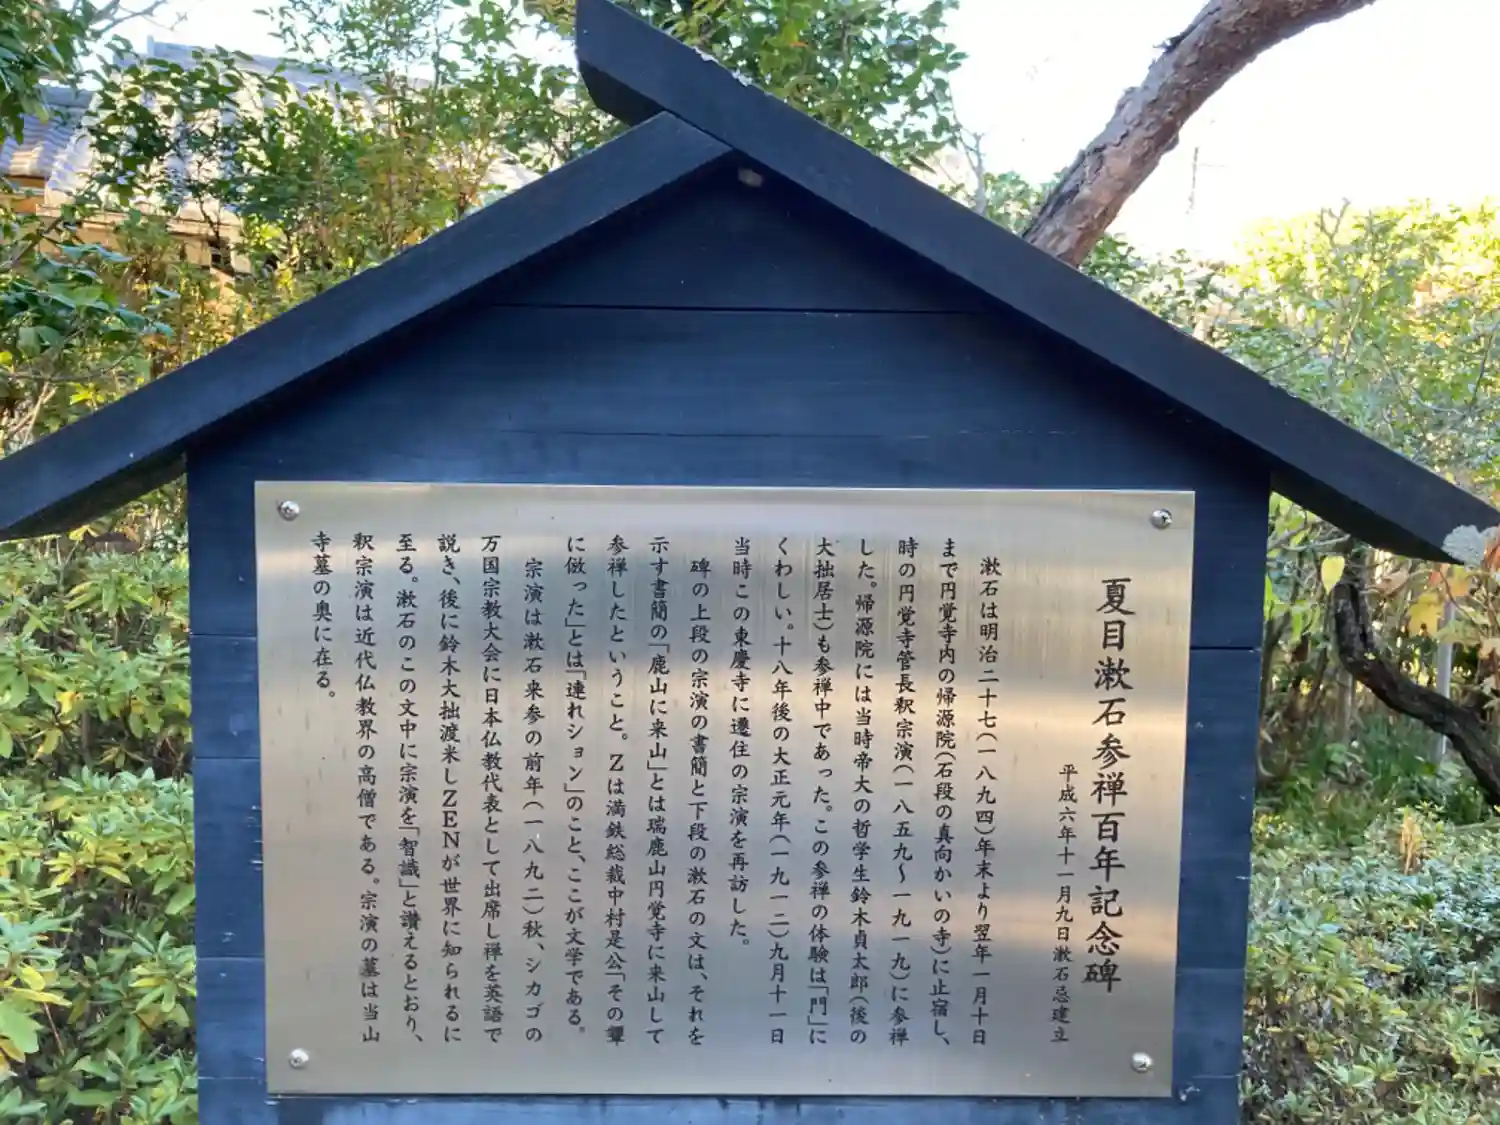 夏目漱石参禅百年記念碑
平成六年十一月九日漱石忌建立
漱石は明治二十七(一八九四)年末より翌年一月十日
まで円覚寺内の帰源院(石段の真向かいの寺)に止宿し、
時の円覚寺管長釈宗演(一八五九〜一九一九)に参禅
した。帰源院には当時帝大の哲学生鈴木貞太郎(後の
大拙居士)も参禅中であった。この参禅の体験は「門」に
くわしい。十八年後の大正元年(一九一二)九月十一日
当時この東慶寺に遷住の宗演を再訪した。
碑の上段の宗演の書簡と下段の漱石の文は、それを
示す書簡の「鹿山に来山」とは瑞鹿山円覚寺に来山して
参禅したということ。Zは満鉄総裁中村是公「その顰
に倣った」とは「連れション」のこと、ここが文学である。
宗演は漱石来参の前年(一八九二)秋、シカゴの
万国宗教大会に日本仏教代表として出席し禅を英語で
説き、後に鈴木大拙渡米しZENが世界に知られるに
至る。漱石のこの文中に宗演を「智識」と讃えるとおり、
釈宗演は近代仏教界の高僧である。宗演の墓は当山
寺墓の奥に在る。